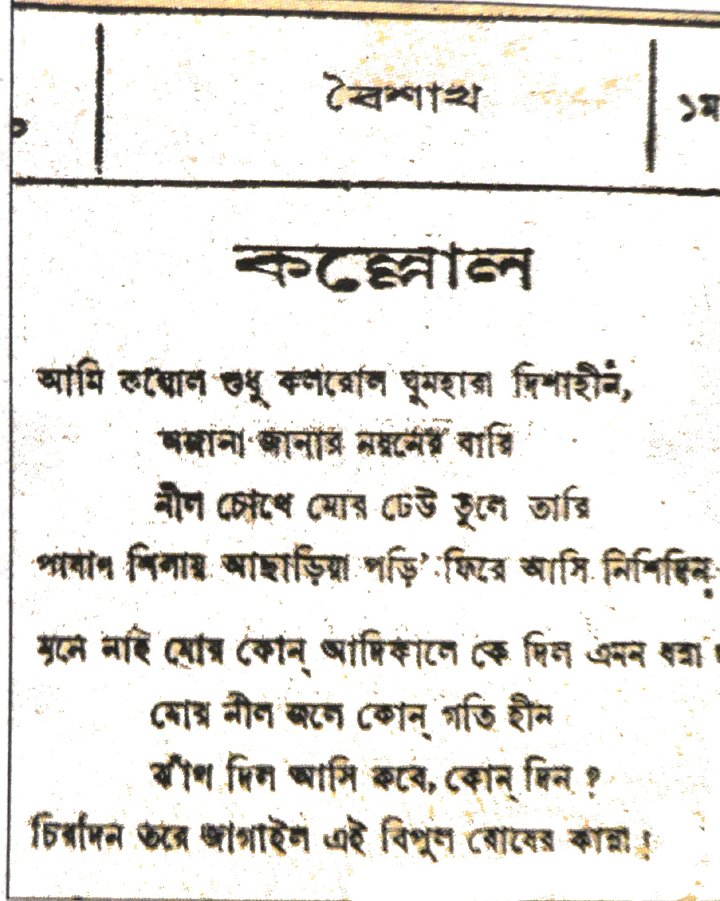 বৈশাখ
১ম
কল্লোল
আমি কল্লোল শুধু কলরোল ঘুমহারা দিশাহীন,
অজানা জানার নয়নের বারি
নীল চোখে মোর ঢেউ তুলে তারি
পাষাণ শিলায় আছাড়িয়া পড়ি' ফিরে আসি নিশিদিন,
মনে নাই মোর কোন্ আদিকালে কে দিল এমন
মোর নীল জলে কোন্ গতি হীন
ঝাঁপ দিল আসি কবে, কোন্ দিন ?
চিরদিন তরে জাগাইল এই বিপুল রোষের কান্না !